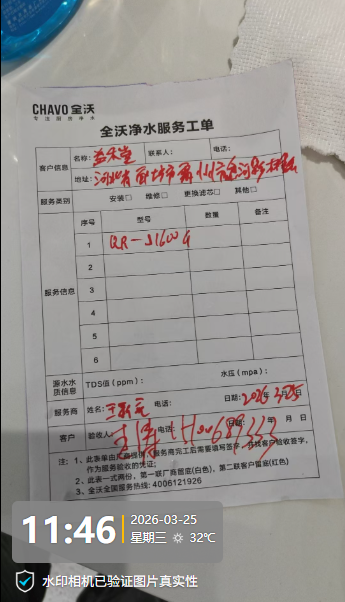 CHAVO 金沃
专注厨房净水
全沃净水服务工单
客户信息 名称: 益禾堂 联系人: 电话:
地址: 河北省
服务类别 安装□ 维修□ 更换滤芯□ 其他□
服务信息
序号 型号 数量 备注
1 QR-J1600G
2
3
4
5
6
源水水质信息 TDS值(ppm): 水压(mpa):
服务商 姓名: 电话: 日期: 2026年3月25
客户 验收人: 电话: 日期: 年 月 日
注: 1、此表单由厂商提供,服务商完工后需要填写签字,并找客户验收签字,
作为服务验收的凭证;
2、此表一式两份,第一联厂商留底(白色),第二联客户留底(红色)
3、全沃全国服务热线: 4006121926
11:46
2026-03-25
星期三 32℃
水印相机已验证图片真实性